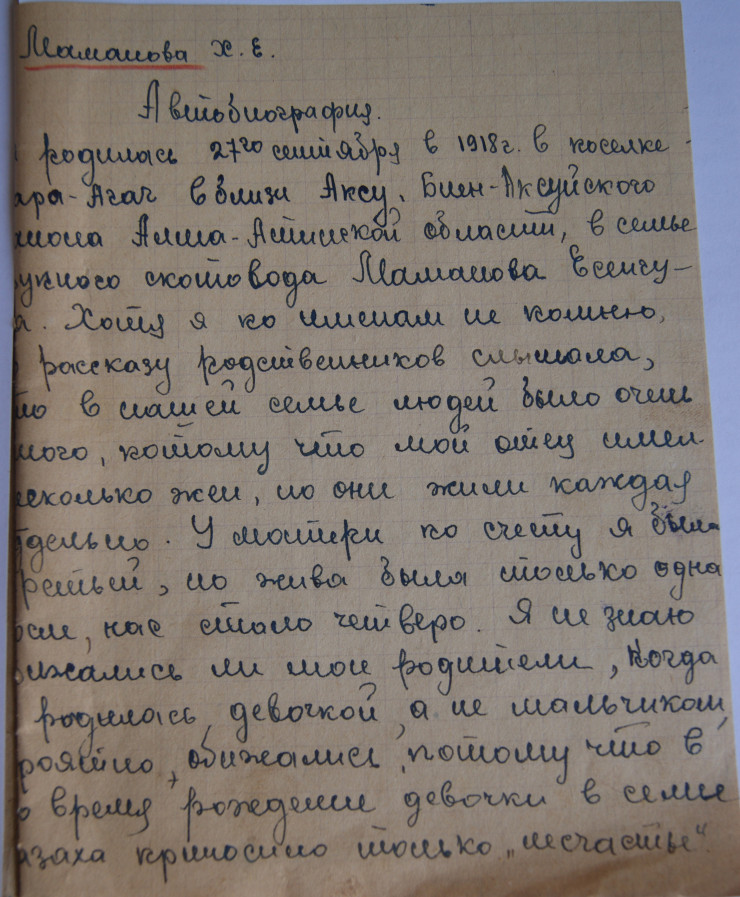 Маманова Х. Е.
Автобиография.
родилась 27го сентября в 1918г. в поселке
ара-Агач вблизи Аксу, Биен-Аксуйского
йона Алма-Атинской области, в семье
упного скотовода Маманова Есенгу-
а. Хотя я по именам не помню,
рассказу родственников слышала,
то в нашей семье людей было очень
много, потому что мой отец имел
несколько жен, но они жили каждая
тдельно. У матери по счету я была
ретьей, но жива была только одна
нас стало четверо. Я не знаю
бижались ли мои родители, когда
родилась девочкой, а не мальчиком,
роятно, обижались, потому что в
о время рождение девочки в семье
азаха приносило только „несчастье".